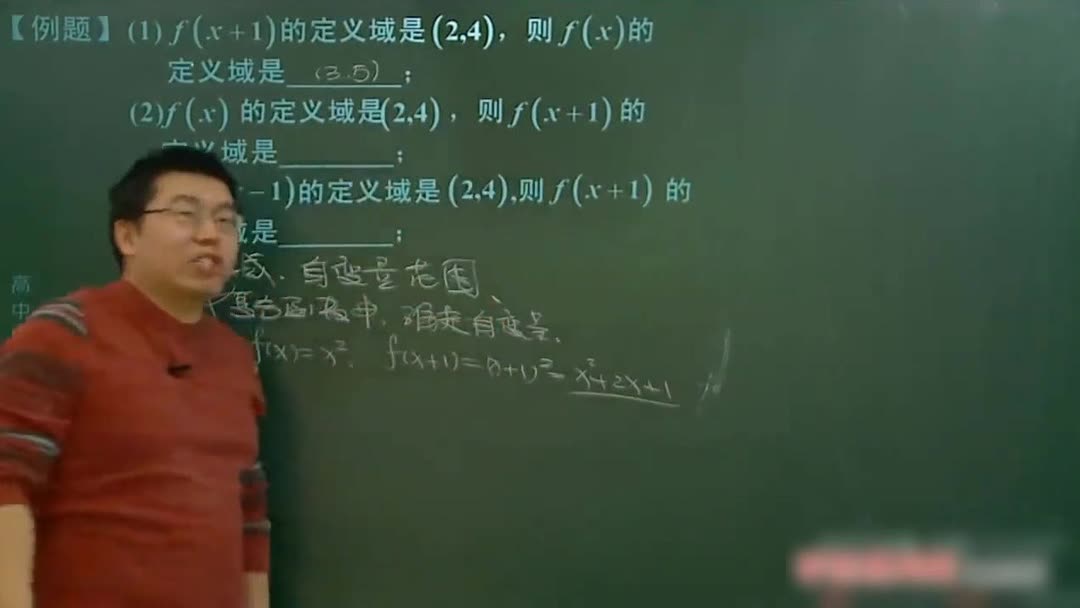 【例题】(1) f(x+1)的定义域是(2,4)，则f(x)的
定义域是 (3.5) ；
(2)f(x) 的定义域是(2,4)，则f(x+1)的
定义域是______；
-1)的定义域是(2,4),则f(x+1) 的
域是______；
域、自变量范围、
复合函数中，
自变量.
f(x)=x². f(x+1)=(x+1)²=x²+2x+1
高
中